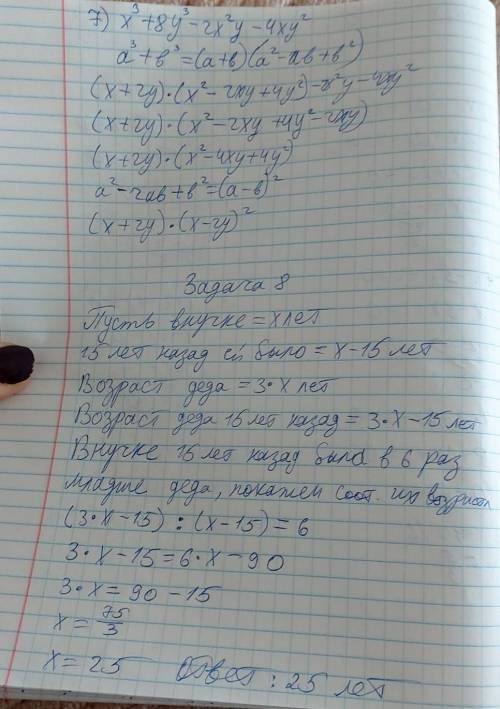 7) x³+8y³-2x²y-4xy²
a³+b³=(a+b)(a²-ab+b²)
(x+2y)·(x²-2xy+4y²)-2x²y-4xy²
(x+2y)·(x²-2xy+4y²-2xy)
(x+2y)·(x²-4xy+4y²)
a²-2ab+b²=(a-b)²
(x+2y)·(x-2y)²
Задача 8
Пусть внучке = x лет
15 лет назад ей было = x-15 лет
Возраст деда = 3·x лет
Возраст деда 15 лет назад = 3·x-15 лет
Внучке 15 лет назад была в 6 раз
младше деда, покажем соот. их возраст
(3·x-15):(x-15)=6
3·x-15=6·x-90
3·x=90-15
x=75/3
x=25 Ответ: 25 лет